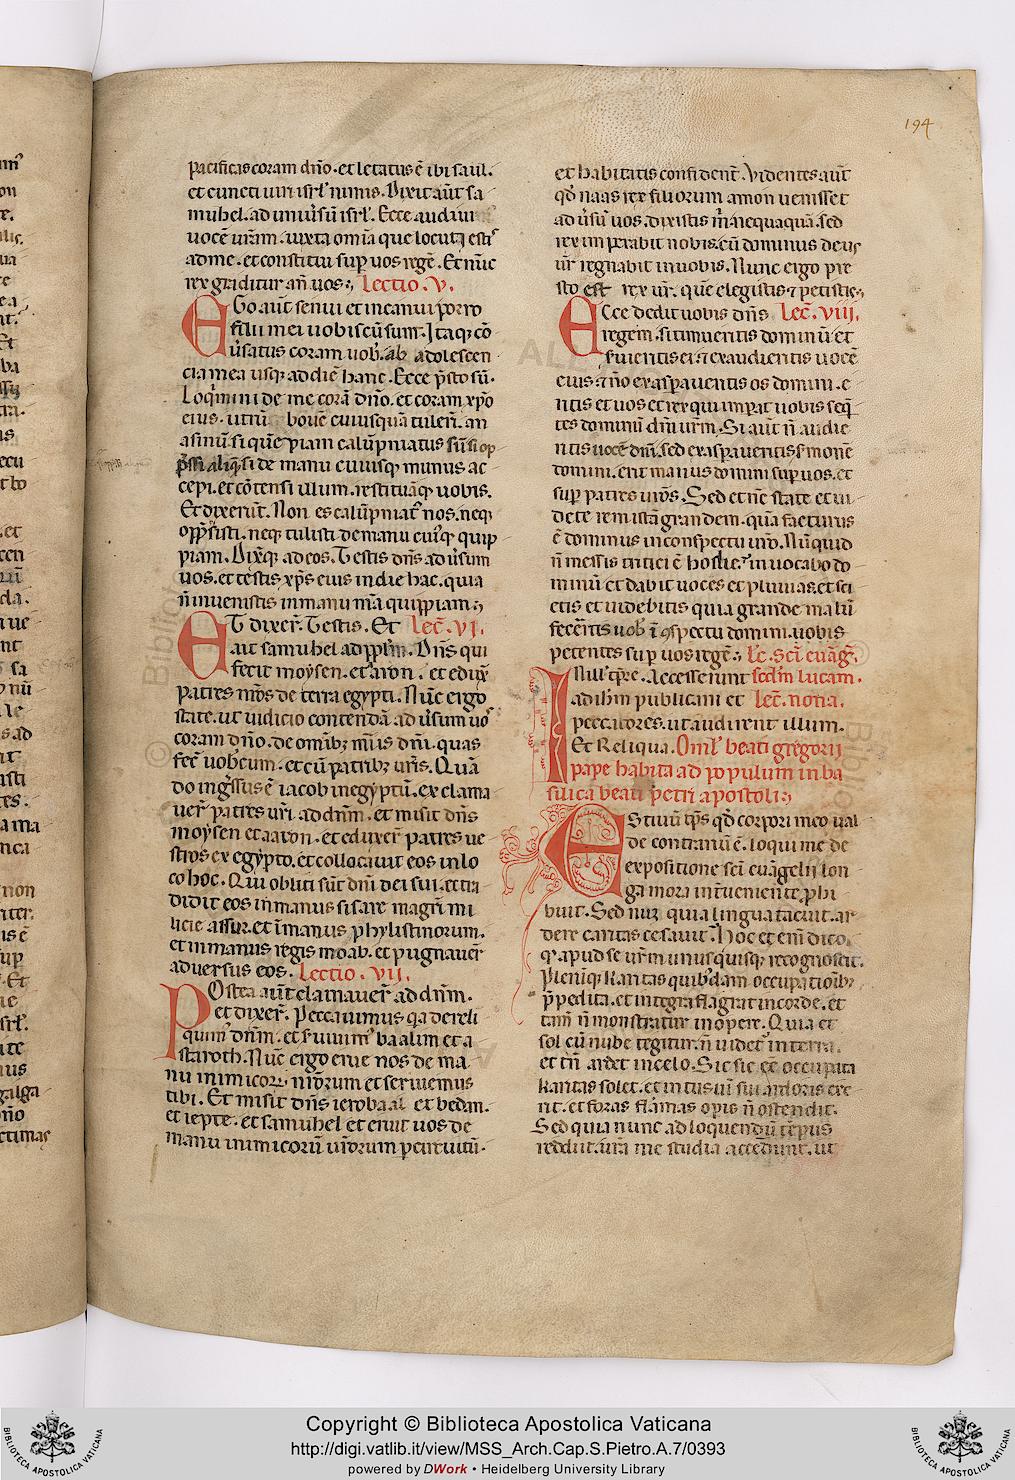 194
pacificas coram dño. et letatus ē ibi saul.
et cuncti uiri isrl' nimis. Dixit aūt sa
muhel. ad uniu'sū isrl'. Ecce audiui
uocē urām. iuxta omīa que locuti esti'
ad me. et constitui sup uos regē. Et nūc
rex graditur añ uos; Lectio. V.
EGo. aūt senui et incanui porro
filii mei uobiscū sunt. Itaq; cō
u'satus coram uob'. ab adolescen
cia mea usq; ad diē hanc. Ecce p̄sto sū.
Loq'mini de me corā dño. et coram xp̄o
eius. utrū bouē cuiusquā tuleri. an
asinū. si quē piam calūpniatus sū. si op
p̄ssi aliq'. si de manu cuiusq; munus ac
cepi. et cōtensi illum. restituāq; uobis.
Et dixerūt. Non es calūpniat' nos. neq;
opp̄ssisti. neq; tulisti de manu cui'q; quip
piam. Dixq; ad eos. Testis dñs ad u'sum
uos. et testis xp̄s eius in die hac. quia
ñ inuenistis in manu m̄a quippiam;
ET dixer'. Testis. Et Lec̄. VI.
ait samuhel ad pp̄lm. Dñs qui
fecit moysen. et aaron. et eduxit
patres nr̄os de terra egypti. Nūc ergo
state. ut iudicio contendā ad u'sum uo'
coram dño. de omīb; m̄is dñi. quas
fec̄ uob'cum. et cū patrib; ur̄is. Quō
do ing'ssus ē iacob in egyptū. ex clama
uer' patres ur̄i. ad dñm. et misit dñs
moysen et aaron. et eduxer' patres ue
stros ex egypto. et collocauit eos in lo
co hoc. Qui obliti sūt dñi dei sui. et tra
didit eos in manus sisare magr̄i mi
licie assur. et ī manus phylistinorum.
et in manus regis moab. et pugnauer'
aduersus eos. Lectio. VII.
Postea aūt clamauer' ad dñm.
et dixer'. Peccauimus q'a dereli
quim' dñm. et s'uiuim' baalim et a
staroth. Nūc ergo erue nos de ma
nu inimicorū nr̄orum et seruiemus
tibi. Et misit dñs ierobaal et bedan.
et iepte. et samuhel et eruit uos de
manu inimicorū ur̄orum p circuitū.
et habitatis confident'. Videntes aūt
qd' naas rex filiorum amon uenisset
ad u'sū uos. dixistis m̄. nequaquā. sed
rex imperabit nobis. cū dominus deus
ur̄ regnabit in uobis. Nunc ergo pre
sto est rex ur̄. quē elegistis et petistis;
ECce dedit uobis dñs Lec̄. VIII.
regem. si timueritis dominū et
s'uieritis ei. et exaudieritis uocē
eius. et ño exasp̄aueritis os domini. e
ritis et uos et rex qui imperat uobis seq̄
tes dominū dm̄ ur̄m. Si aūt ñ audie
ritis uocē dñi. sed exasp̄aueritis s'monē
domini. erit manus domini sup uos. et
sup patres ur̄os. Sed et nūc state et ui
dete rem istā grandem. quā facturus
ē dominus in conspectu ur̄o. Nūquid
ñ messis tritici ē hodie? inuocabo do
minū et dabit uoces et pluuias. et sci
etis et uidebitis quia grande malū
fecēritis uob' ī 9spectu domini. uobis
petentes sup uos regē; Lc̄. sc̄i euāḡ.
IN ill' tp̄re. Accesserunt scd̄m lucam.
ad ih̄m publicani et Lec̄. nona.
peccatores. ut audirent illum.
Et Reliqua. Oml' beati gregorii
pape habita ad populum in ba
silica beati petri apostoli;
EStiuū tp̄s qd' corpori meo ual
de contrariū ē. loqui me de
expositione sc̄i euāgelii lon
ga mora int'ueniente. phi
buit. Sed nūq' quia lingua tacuit. ar
dere caritas cessauit. Hoc et eni dico.
q' apud se ur̄m unusquisq; recognoscit.
Plerūq; karitas quib'dam occupationib;
p̄pedita. et integra flagrat in corde. et
tam̄ ñ monstratur in opere. Quia et
sol cū nube tegitur. ñ uidet' in terra.
et tm̄ ardet in celo. Sic sic eē occupata
karitas solet. et intus uī sui ardoris exe
rit. et foras flāmas opis ñ ostendit.
Sed quia nunc ad loquendū tēpus
reddiit. ur̄a me studia accedunt. ut
Copyright © Biblioteca Apostolica Vaticana
http://digi.vatlib.it/view/MSS_Arch.Cap.S.Pietro.A.7/0393
powered by DWork • Heidelberg University Library
BIBLIOTECA APOSTOLICA VATICANA
BIBLIOTECA APOSTOLICA VATICANA